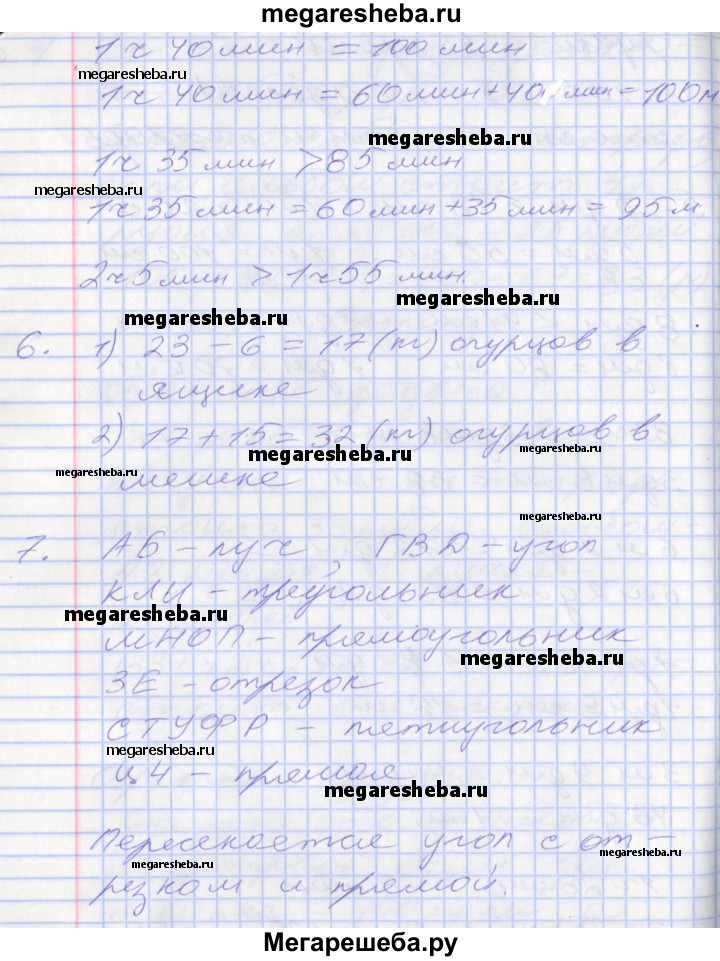 megaresheba.ru
1 ч 40 мин = 100 мин
megaresheba.ru
1 ч 40 мин = 60 мин + 40 мин = 100 м
megaresheba.ru
1 ч 35 мин > 85 мин
megaresheba.ru
1 ч 35 мин = 60 мин + 35 мин = 95 м
2 ч 5 мин > 1 ч 55 мин
megaresheba.ru
megaresheba.ru
6. 1) 23 - 6 = 17 (кг) огурцов в
ящике
2) 17 + 15 = 32 (кг) огурцов в
megaresheba.ru
megaresheba.ru
megaresheba.ru
мешке
megaresheba.ru
7. АБ - луч, ГВД - угол
КЛИ - треугольник
megaresheba.ru
МНОП - прямоугольник
megaresheba.ru
ЗЕ - отрезок
СТУФР - пятиугольник
megaresheba.ru
ЦЧ - прямая
megaresheba.ru
Пересекается угол с от-
megaresheba.ru
megaresheba.ru
резком и прямой.
Мегарешеба.ру